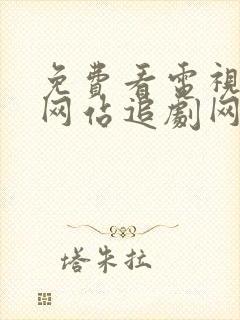 免費看電視
网佔追劇网
塔朱拉